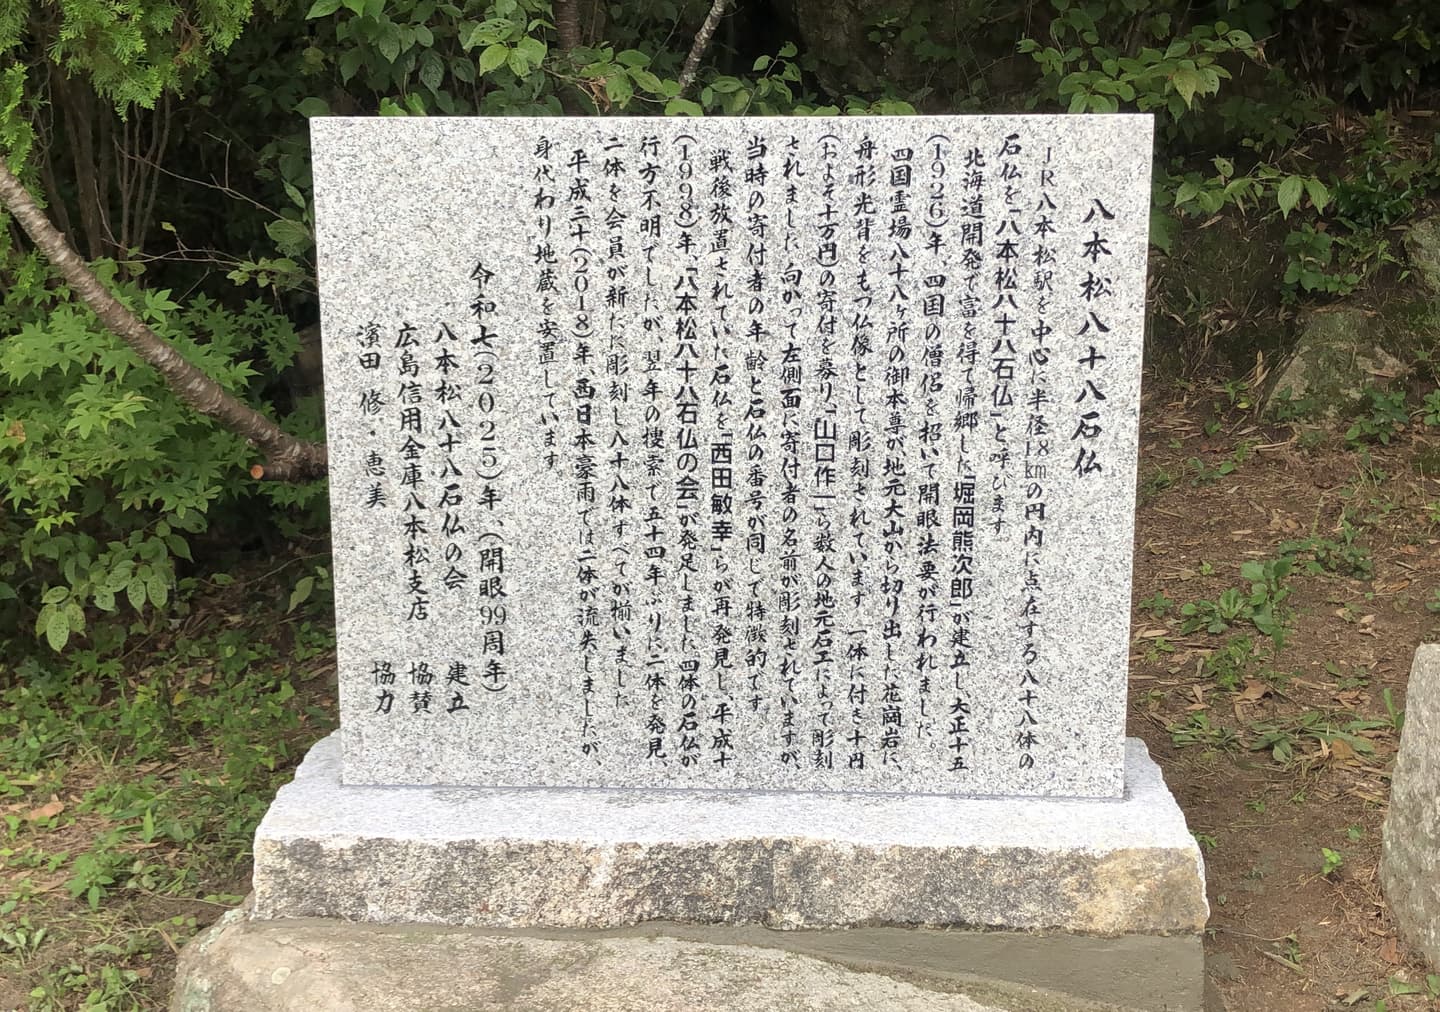 八本松八十八石仏
JR八本松駅を中心に半径1.8kmの円内に点在する八十八体の
石仏を「八本松八十八石仏」と呼びます
北海道開発で富を得て帰郷した「堀岡熊次郎」が建立し、大正十五
(1926)年、四国の僧侶を招いて開眼法要が行われました。
四国霊場八十八ヶ所の御本尊が、地元大山から切り出した花崗岩に、
舟形光背をもつ仏像として彫刻されています 一体に付き十円
(およそ十万円)の寄付を募り、「山口作一」ら数人の地元石工によって彫刻
されました 向かって左側面に寄付者の名前が彫刻されていますが、
当時の寄付者の年齢と石仏の番号が同じで特徴的です。
戦後放置されていた石仏を「西田敏幸」らが再発見し、平成十
(1998)年、「八本松八十八石仏の会」が発足しました 四体の石仏が
行方不明でしたが、翌年の捜索で五十四年ぶりに二体を発見、
二体を会員が新たに彫刻し八十八体すべてが揃いました
平成三十(2018)年、西日本豪雨では二体が流失しましたが、
身代わり地蔵を安置しています。
令和七(2025)年、(開眼99周年)
八本松八十八石仏の会 建立
広島信用金庫八本松支店 協賛
濱田 修・恵美 協力